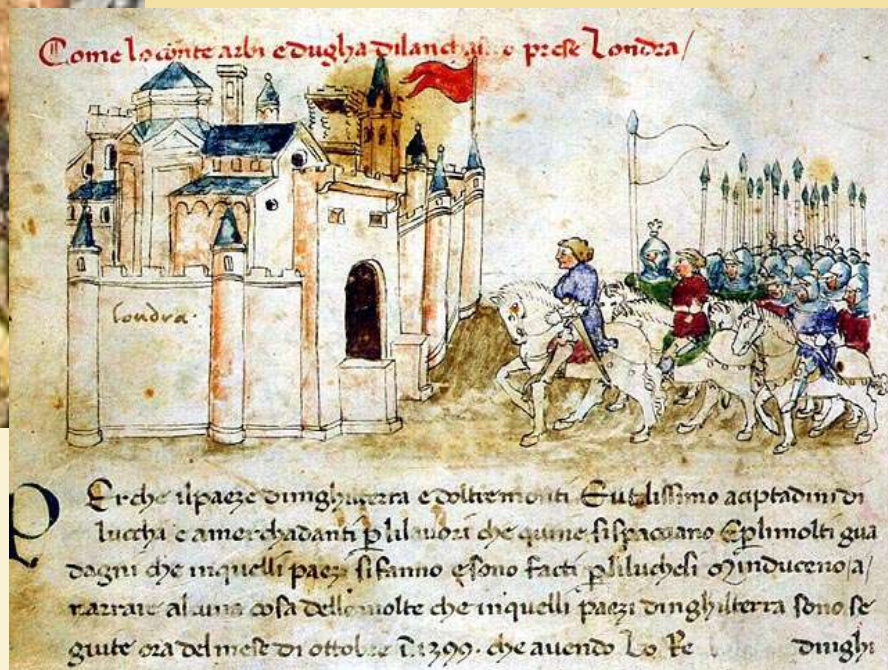 Come lo conte arbi e dugha di lanchai o prese Londra
londra
PErche il paeze dinghilterra e doltremonti E utilissimo a ciptadini di
luccha e a merchadanti p li lavori che quine si spacciano E p li molti gua
dagni che in quelli paezi si fanno e sono facti p li luchesi Minduceno a
narrare alcuna cosa delle molte che in quelli paezi dinghilterra sono se
guite ora del mese di ottobre 1399. che avendo Lo Re dinghi